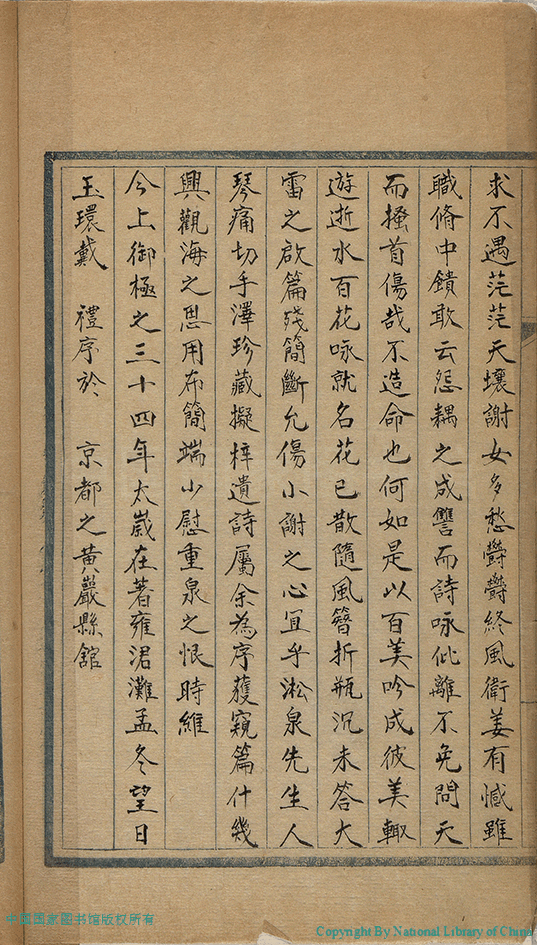 求不遇茫茫天壤謝女多愁鬱鬱終風衛姜有憾雖
職脩中饋敢云怨耦之成讐而詩咏仳離不免問天
而搔首傷哉不造命也何如是以百美吟成彼美輙
遊逝水百花咏就名花已散隨風簪折瓶沉未答大
雷之啟篇殘簡斷尤傷小謝之心宜乎淞泉先生人
琴痛切手澤珍藏擬梓遺詩屬余為序蒦窺篇什幾
興觀海之思用布簡端少慰重泉之恨時維
今上御極之三十四年太嵗在著雍涒灘孟冬望日
玉環戴 禮序於 京都之黄巖縣舘
中国国家图书馆版权所有
Copyright By National Library of China